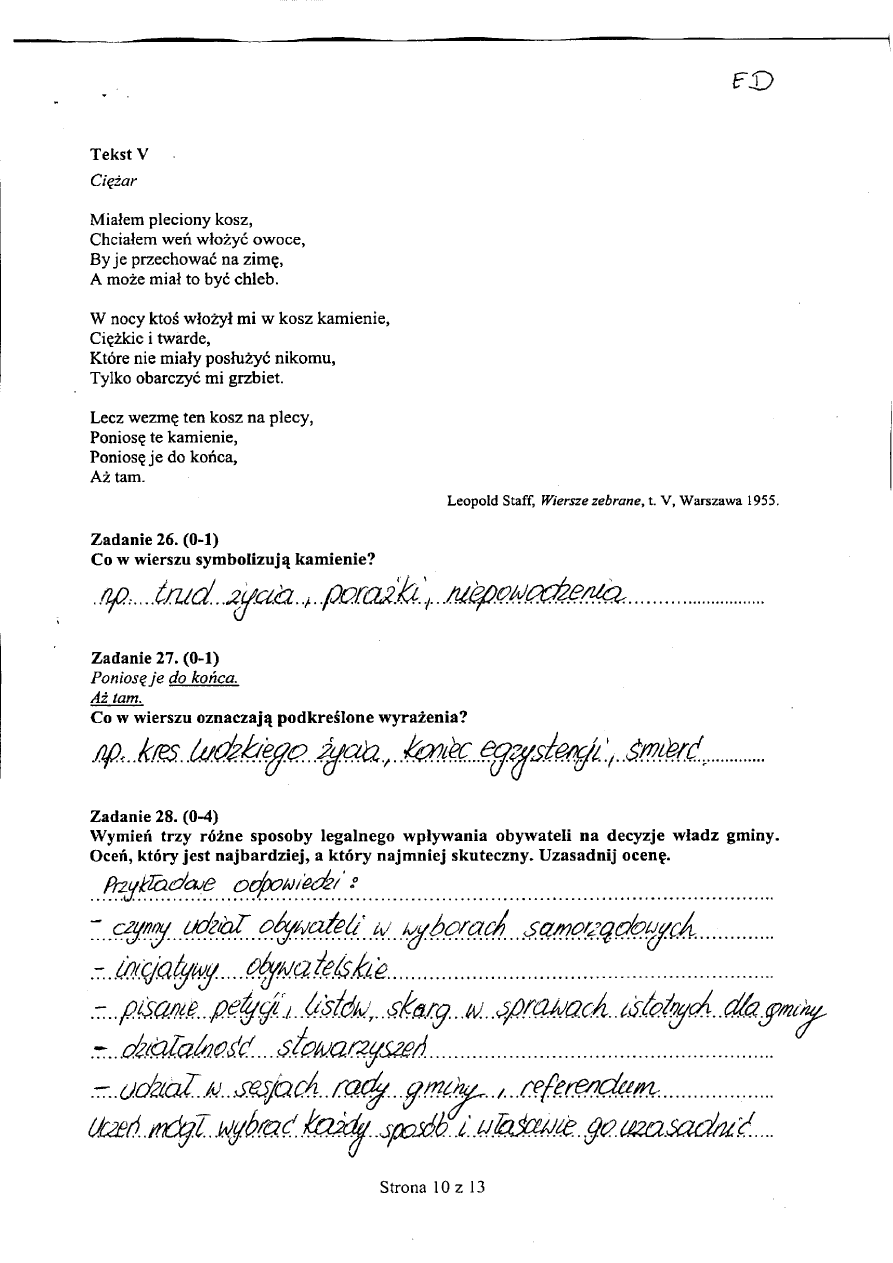 ED
Tekst V
Ciężar
Miałem pleciony kosz,
Chciałem weń włożyć owoce,
By je przechować na zimę,
A może miał to być chleb.
W nocy ktoś włożył mi w kosz kamienie,
Ciężkie i twarde,
Które nie miały posłużyć nikomu,
Tylko obarczyć mi grzbiet.
Lecz wezmę ten kosz na plecy,
Poniosę te kamienie,
Poniosę je do końca,
Aż tam.
Leopold Staff, Wiersze zebrane, t. V, Warszawa 1955.
Zadanie 26. (0-1)
Co w wierszu symbolizują kamienie?
np. trud życia, porażki, niepowodzenia
Zadanie 27. (0-1)
Poniosę je do końca.
Aż tam.
Co w wierszu oznaczają podkreślone wyrażenia?
np. kres ludzkiego życia, koniec egzystencji, śmierć
Zadanie 28. (0-4)
Wymień trzy różne sposoby legalnego wpływania obywateli na decyzje władz gminy.
Oceń, który jest najbardziej, a który najmniej skuteczny. Uzasadnij ocenę.
Przykładowe odpowiedzi:
- czynny udział obywateli w wyborach samorządowych
- inicjatywy obywatelskie
- pisanie petycji, listów, skarg w sprawach istotnych dla gminy
- działalność stowarzyszeń
- udział w sesjach rady gminy, referendum
Uczeń mógł wybrać każdy sposób i właściwie go uzasadnić
Strona 10 z 13